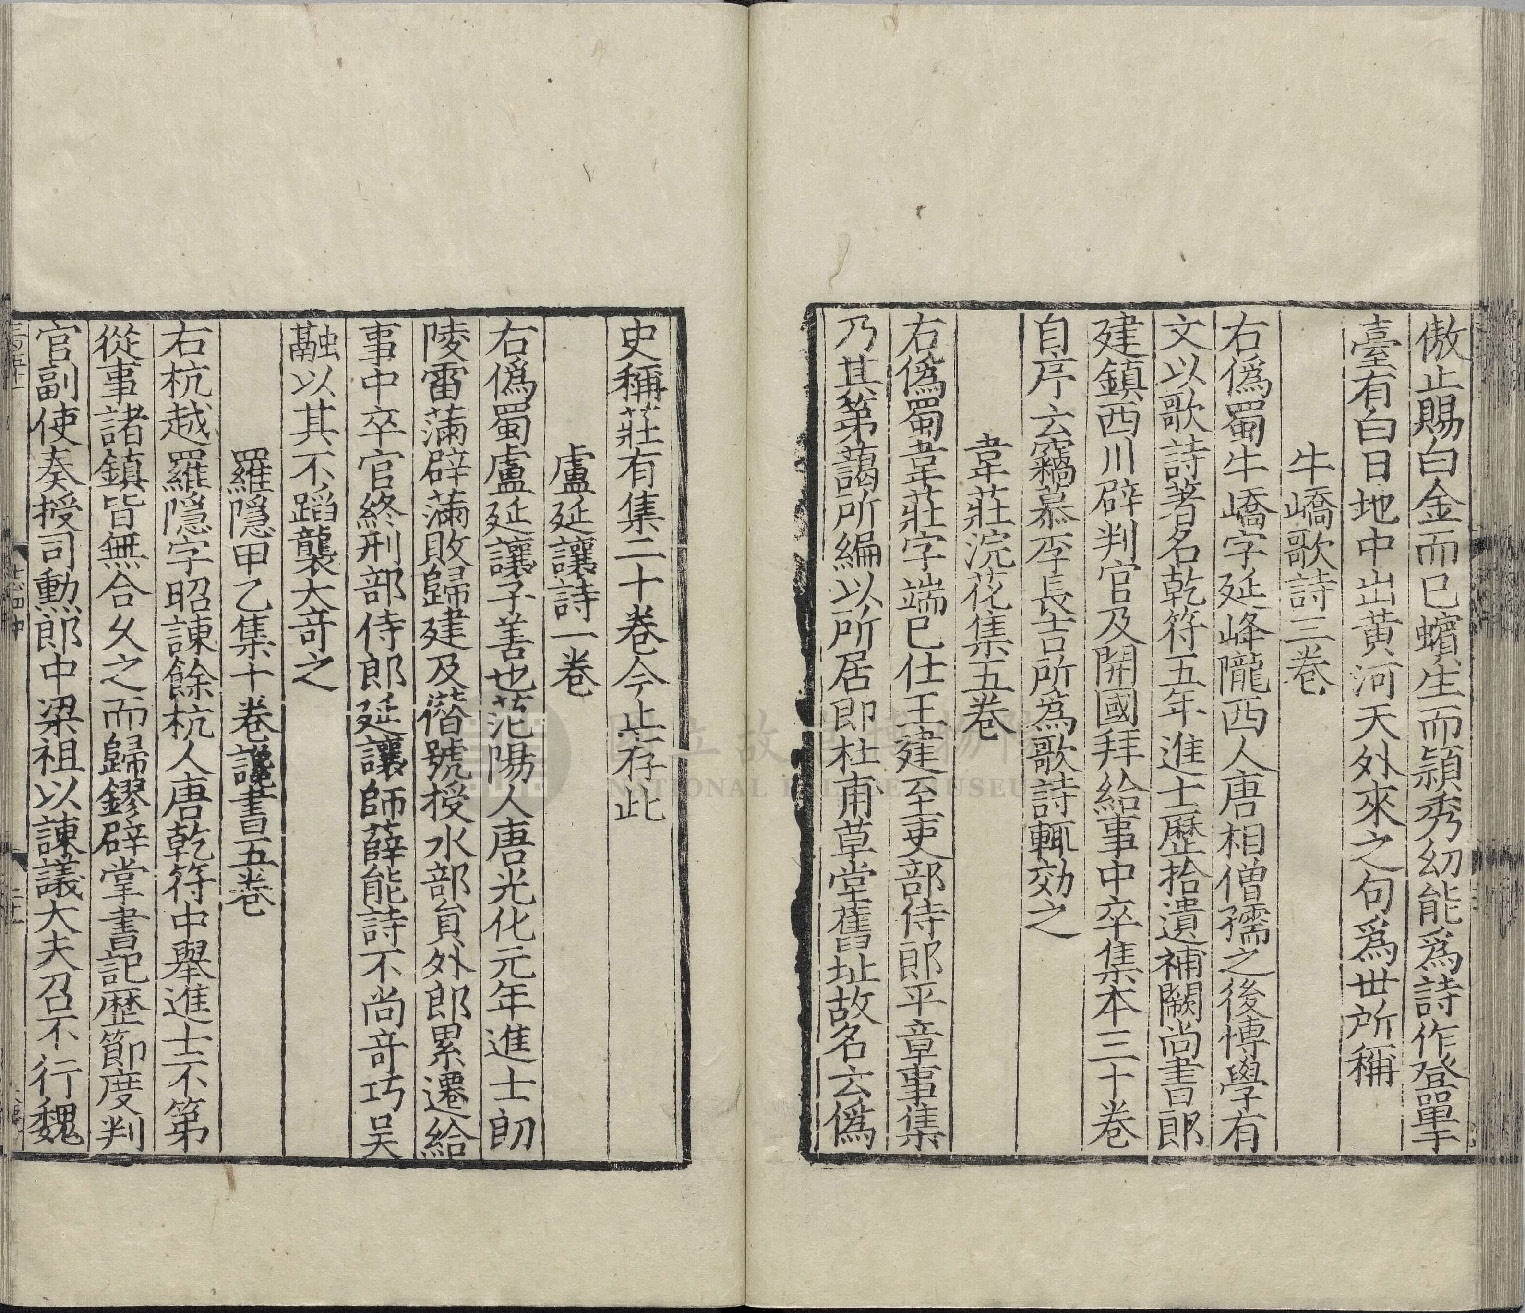 傲止賜白金而已蠙生而頴秀幼能爲詩作登單于
臺有白日地中出黄河天外來之句爲世所稱
牛嶠歌詩三卷
右僞蜀牛嶠字延峰隴西人唐相僧孺之後博學有
文以歌詩著名乾符五年進士歷拾遺補闕尚書郎
建鎮西川辟判官及開國拜給事中卒集本三十卷
自序云竊慕李長吉所爲歌詩輒効之
韋莊浣花集五卷
右僞蜀韋莊字端已仕王建至吏部侍郎平章事集
乃其弟藹所編以所居即杜甫草堂舊址故名云僞
史稱莊有集二十卷今止存此
盧延讓詩一卷
右僞蜀盧延讓子善也范陽人唐光化元年進士朗
陵雷滿辟滿敗歸建及僭號授水部員外郎累遷給
事中卒官終刑部侍郎延讓師薛能詩不尚竒巧吴
融以其不蹈襲大竒之
羅隱甲乙集十卷讒書五卷
右杭越羅隱字昭諫餘杭人唐乾符中舉進士不第
從事諸鎮皆無合久之而歸鏐辟掌書記歷節度判
官副使奏授司勳郎中梁祖以諫議大夫召不行魏
國立故宮博物院
NATIONAL PALACE MUSEUM